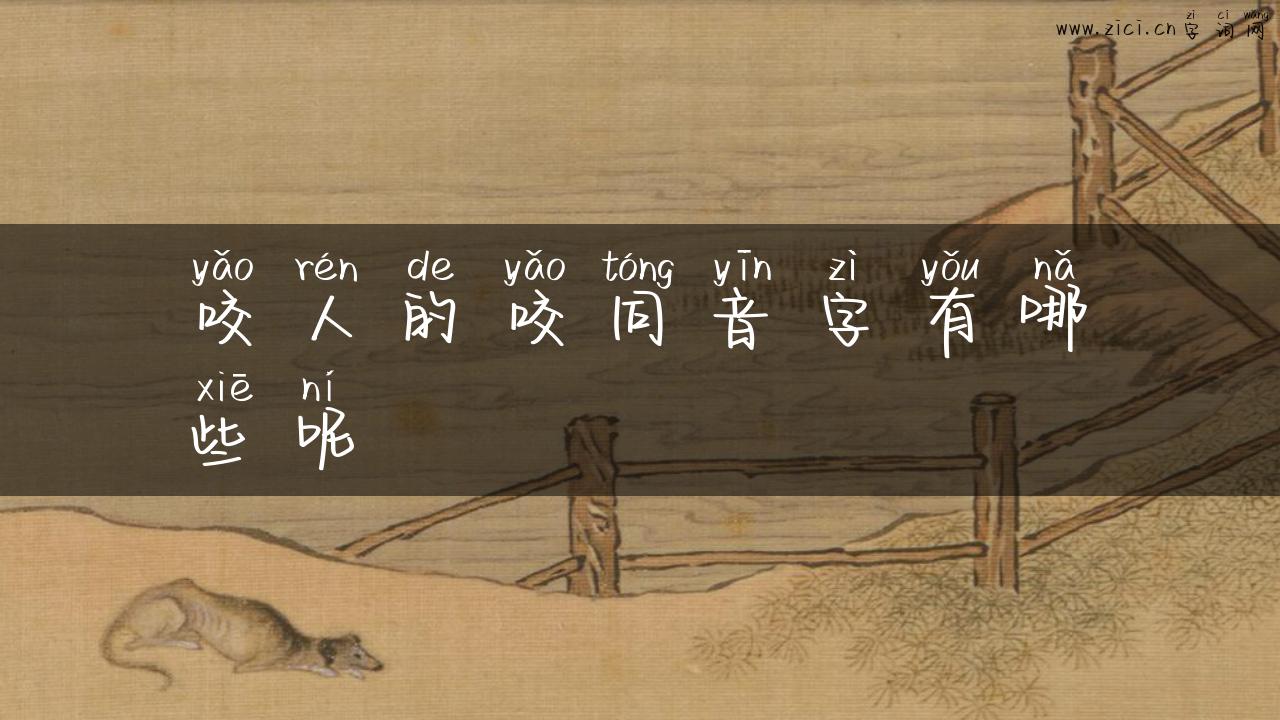 zì cí wǎng
www.zici.cn字词网
yǎo rén de yǎo tóng yīn zì yǒu nǎ
咬人的咬同音字有哪
xiē ní
些呢